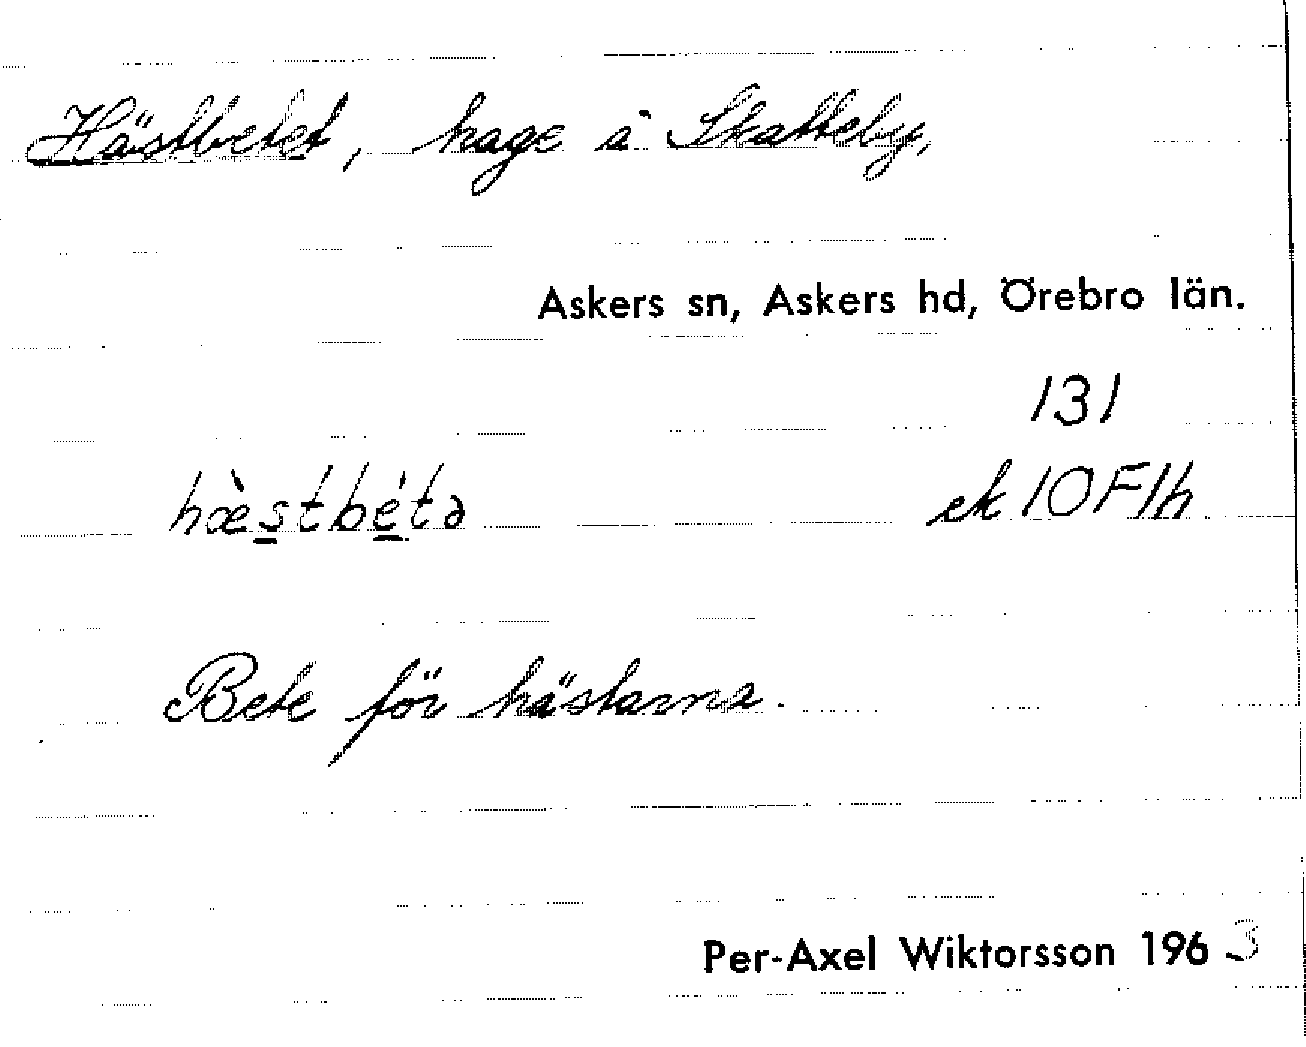 Hästbetet, hage å Skatteby,
Askers sn, Askers hd, Örebro län.
131
hæ̀stbétə ek 10F1h
Bete för hästarna.
Per-Axel Wiktorsson 1963